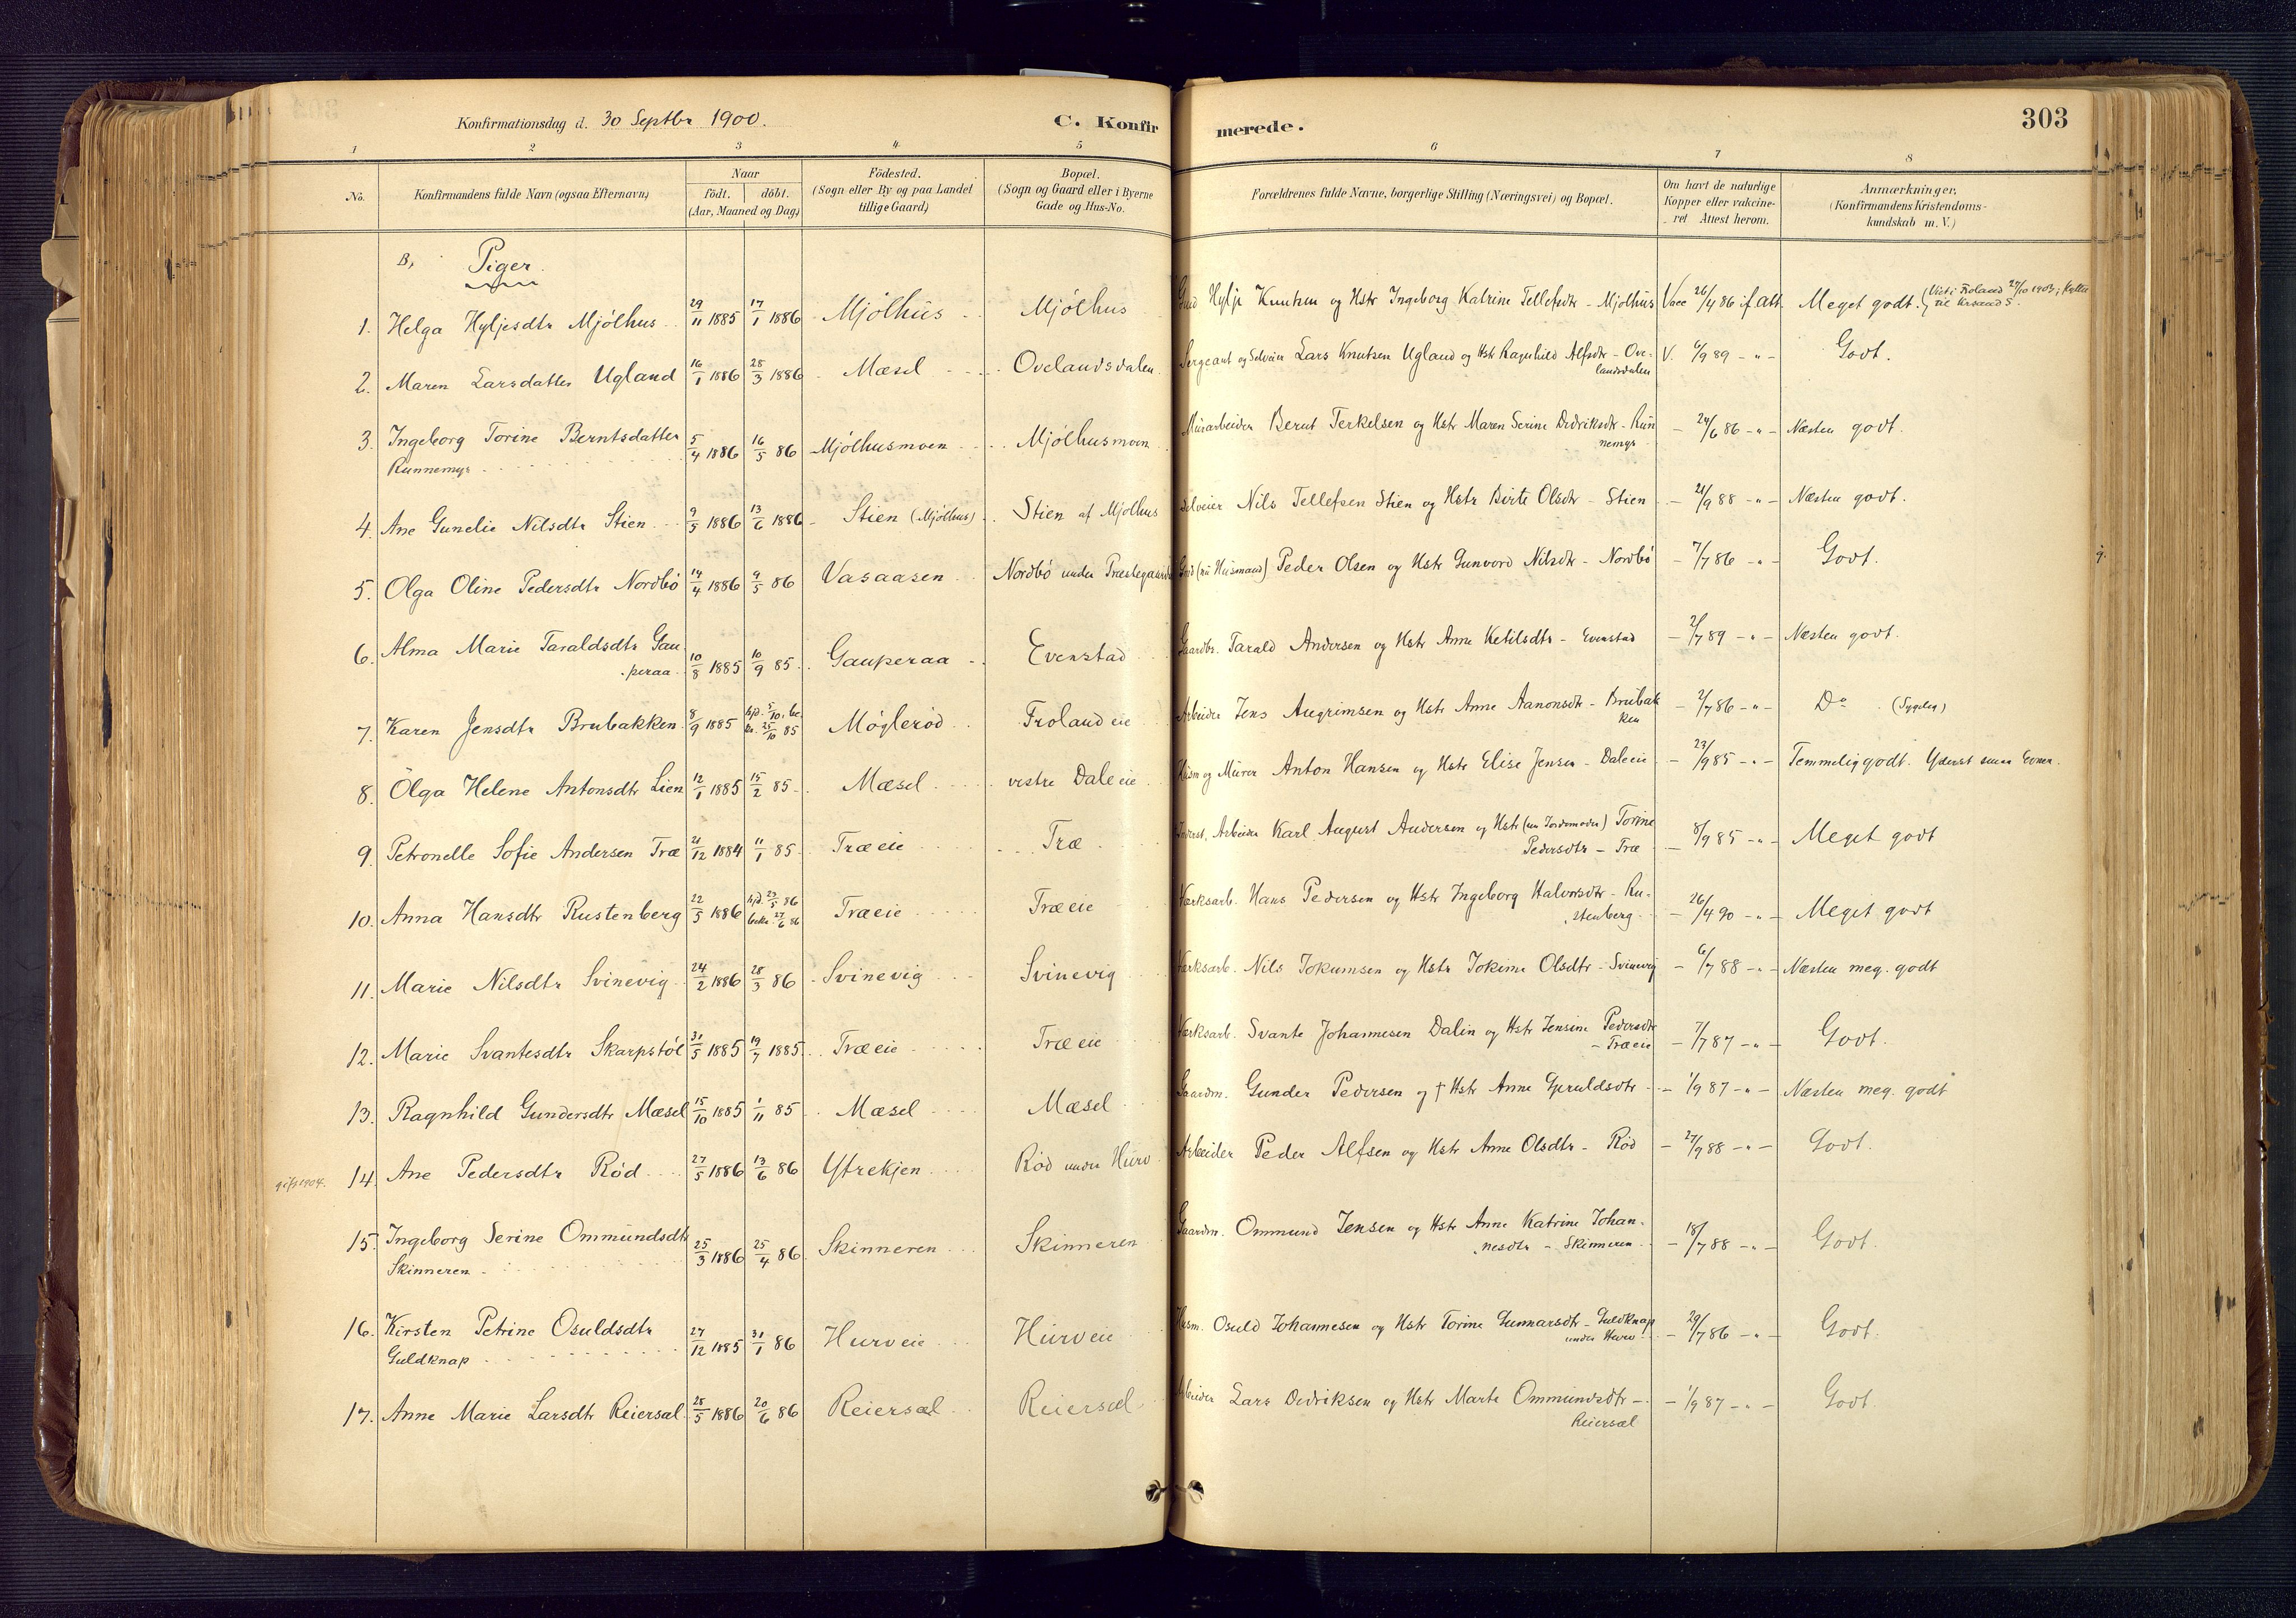 Konfirmationsdag d. 30 Septbr 1900. C. Konfirmerede. 303
1 2 3 4 5 6 7 8
No. Konfirmandens fulde Navn (ogsaa Efternavn) Naar født. døbt. (Aar, Maaned og Dag) Fødested. (Sogn eller By og paa Landet tillige Gaard) Bopæl. (Sogn og Gaard eller i Byerne Gade og Hus-No. Forældrenes fulde Navne, borgerlige Stilling (Næringsvei) og Bopæl. Om havt de naturlige Kopper eller vakcineret. Attest herom. Anmærkninger. (Konfirmandens Kristendomskundskab m. V.)
B, Piger.
1. Helga Hyljesdtr Mjölhus 29/11 1885 17/1 1886 Mjölhus Mjölhus Hylje Knutsen og Hstr Ingeborg Katrine Tellefsdtr - Mjölhus Vacc 26/4 86 if. Att. Meget godt. (Viet i Froland 27/10 1903;
2. Maren Larsdatter Ugland 16/1 1886 28/3 1886 Mæsel Ovelandsdalen Sergeant og Selveier Lars Knutsen Ugland og Hstr Ragnhild Alfsdtr - Ove-
landsdalen V. 6/9 89 - " - Godt.
3. Ingeborg Torine Berntsdatter 5/4 1886 16/5 86 Mjölhusmoen Mjölhusmoen Murarbeider Bernt Terkelsen og Hstr Maren Serine Didriksdtr - Run-
Runnemyr nemyr - 24/6 86 - " - Næsten godt.
4. Ane Gunelie Nilsdtr Stien 9/5 1886 13/6 1886 Stien (Mjölhus) Stien af Mjölhus Selveier Nils Tellefsen Stien og Hstr Birte Olsdtr - Stien - 21/9 88 - " - Næsten godt.
5. Olga Oline Pedersdtr Nordbö 14/4 1886 9/5 86 Vasaasen Nordbö under Præstegaarden (nu Husmand) Peder Olsen og Hstr Gunvord Nilsdtr - Nordbö - 7/7 86 - " - Godt. g.
6. Alma Marie Taraldsdtr Gau-
peraa 10/8 1885 10/9 85 Gauperaa Evenstad Gaardbr. Tarald Andersen og Hstr Anne Ketilsdtr - Evenstad - 2/7 89 - " - Næsten godt.
7. Karen Jensdtr Brubakken 8/9 1885 hjd. 5/10, be-
kr. 25/10 85 Mögleröd Froland eie Arbeider Jens Augrimsen og Hstr Anne Aanonsdtr - Brubak-
ken - 2/7 86 - " - Do (Sygelig)
8. Olga Helene Antonsdtr Lien 12/1 1885 15/2 85 Mæsel vestre Dale eie Husm og Murer Anton Hansen og Hstr Elise Jensen - Dale eie - 23/9 85 - " - Temmelig godt. Yderst smaa Evner.
9. Petronelle Sofie Andersen Træ 21/12 1884 11/1 85 Træ eie Træ Arbeider Karl August Andersen og Hstr (nu Jordemoder) Torine
Pedersdtr - Træ - 8/9 85 - " - Meget godt
10. Anna Hansdtr Rustenberg 22/5 1886 hjd. 23/5 86
bekr. 27/6 86 Træ eie Træ eie Værksarb. Hans Pedersen og Hstr Ingeborg Halvorsdtr - Ru-
stenberg - 26/4 90 - " - Meget godt
11. Marie Nilsdtr Svinevig 24/2 1886 28/3 86 Svinevig Svinevig Værksarb. Nils Jokumsen og Hstr Jokime Olsdtr - Svinevig - 6/7 88 - " - Næsten meg. godt
12. Marie Svantesdtr Skarpstöl 31/5 1885 19/7 1885 Træ eie Træ eie Værksarb. Svante Johannesen Dalin og Hstr Jensine Pedersdtr
- Træ eie - 7/7 87 - " - Godt.
13. Ragnhild Gundersdtr Mæsel 15/10 1885 1/11 85 Mæsel Mæsel Gaardm. Gunder Pedersen og † Hstr Anne Gjeruldsdtr - - 1/9 87 - " - Næsten meg. godt
gift 1904. 14. Ane Pedersdtr Röd 27/5 1886 13/6 86 Yttrekjen Röd under Hurv Arbeider Peder Alfsen og Hstr Anne Olsdtr - Röd - 27/9 88 - " - Godt.
15. Ingeborg Serine Ommundsdtr 25/3 1886 25/4 86 Skinneren Skinneren Gaardm. Ommund Jensen og Hstr Anne Katrine Johan-
Skinneren nesdtr - Skinneren - 18/7 88 - " - Godt.
16. Kirsten Petrine Osuldsdtr 27/12 1885 31/1 86 Hurv eie Hurv eie Husm. Osuld Johannesen og Hstr Torine Gunnarsdtr - Guldknap
Guldknap under Hurv - 29/7 86 - " - Godt.
17. Anne Marie Larsdtr Reiersæl 28/5 1886 20/6 86 Reiersæl Reiersæl Arbeider Lars Didriksen og Hstr Marte Ommundsdtr -
Reiersæl - 1/9 87 - " - Godt.